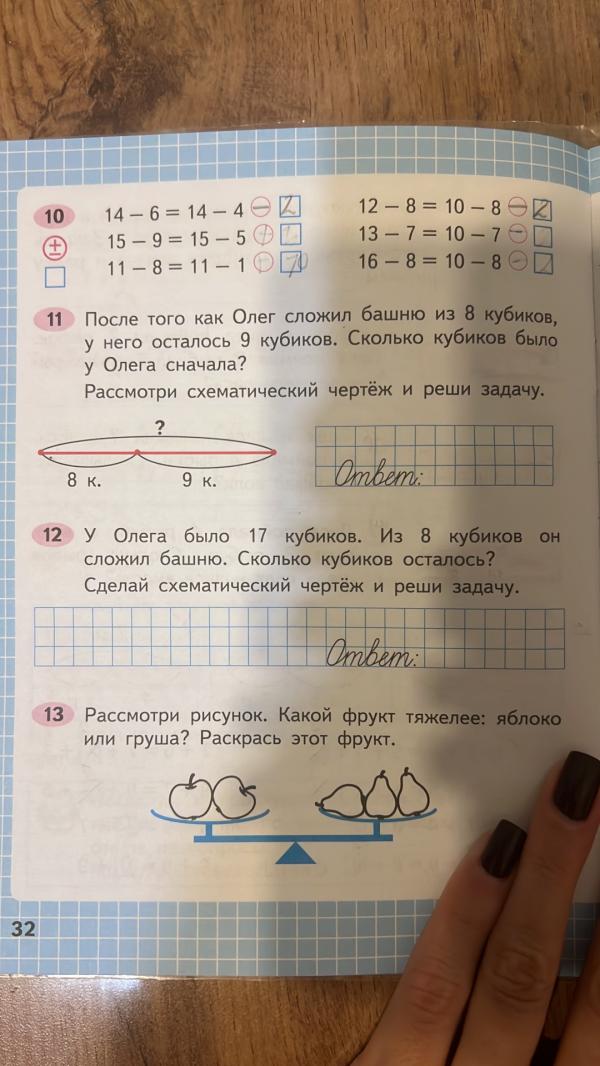 10
14 – 6 = 14 – 4 – 2
12 – 8 = 10 – 8 – 2
15 – 9 = 15 – 5
13 – 7 = 10 – 7 –
11 – 8 = 11 – 1
16 – 8 = 10 – 8 –
±
11 После того как Олег сложил башню из 8 кубиков,
у него осталось 9 кубиков. Сколько кубиков было
у Олега сначала?
Рассмотри схематический чертёж и реши задачу.
?
8 к. 9 к.
Ответ:
12 У Олега было 17 кубиков. Из 8 кубиков он
сложил башню. Сколько кубиков осталось?
Сделай схематический чертёж и реши задачу.
Ответ:
13 Рассмотри рисунок. Какой фрукт тяжелее: яблоко
или груша? Раскрась этот фрукт.
32